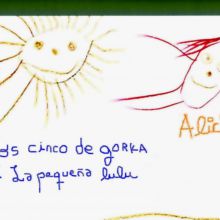 Alic
os cinco de GORKA
La pequeña lulu